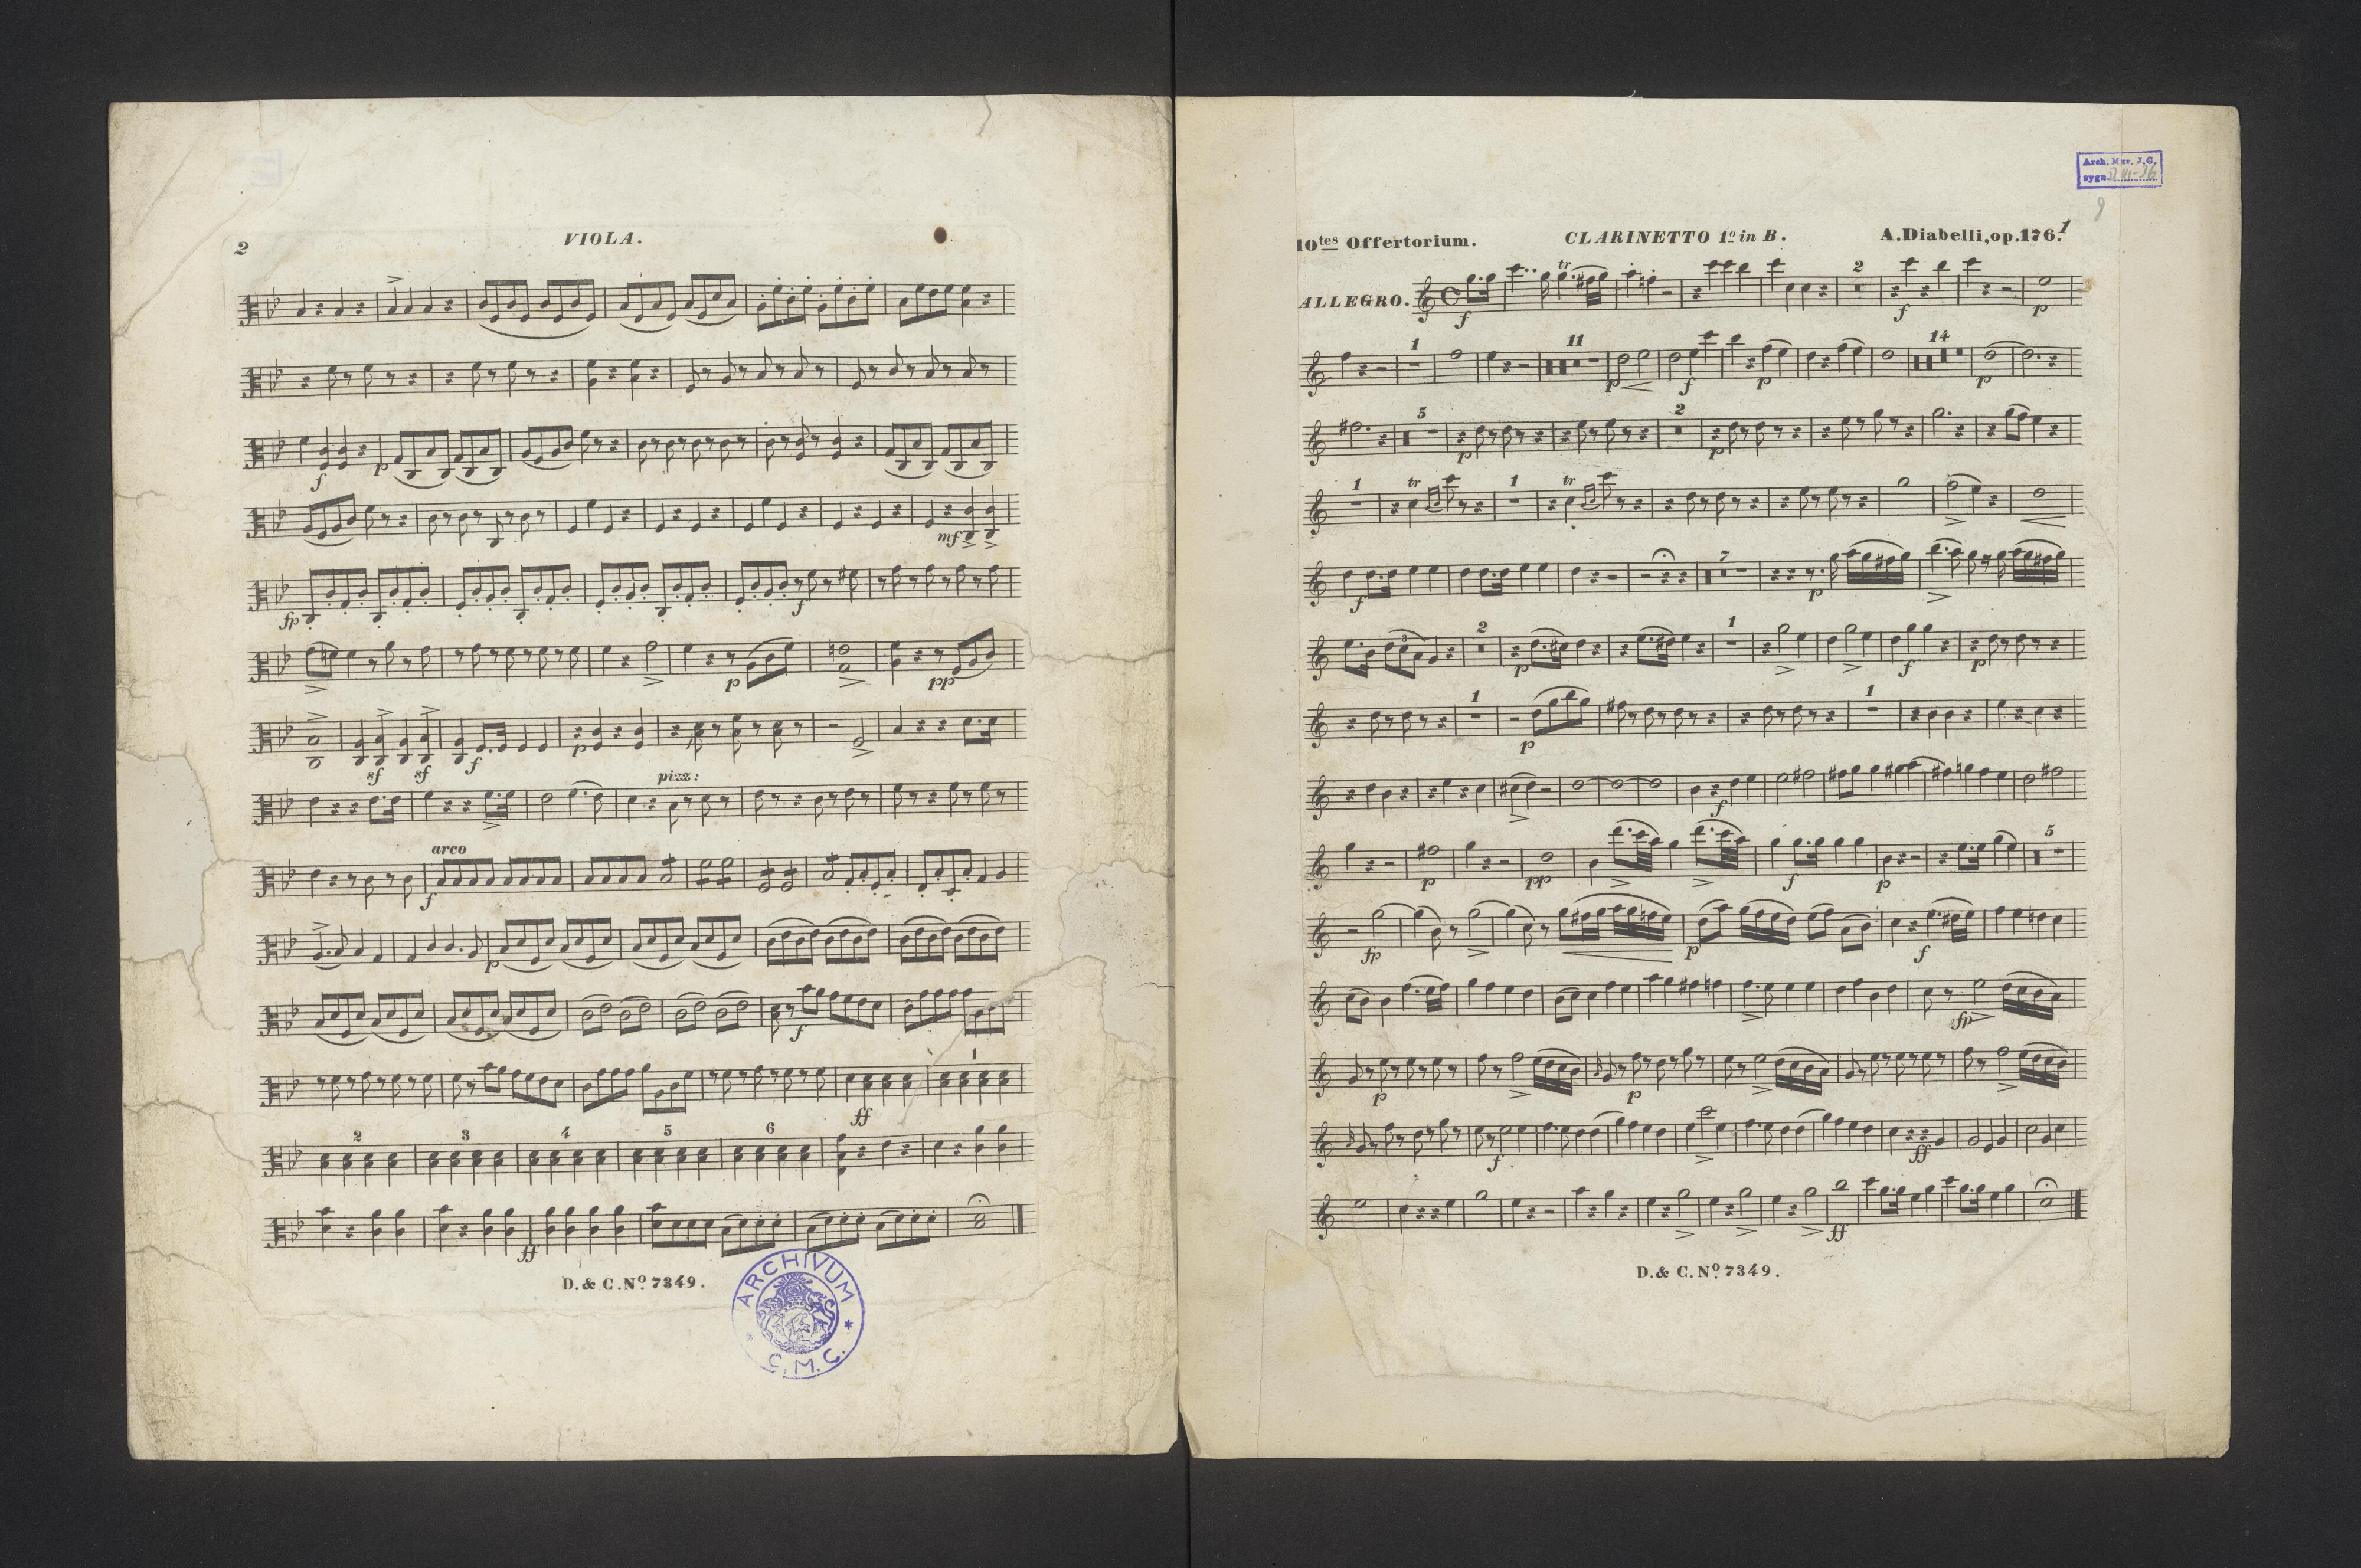 2
VIOLA.
f
p
mf
fp
f
p
pp
sf
sf
f
p
pizz:
arco
f
p
f
ff
1
2
3
4
5
6
ff
D. & C. No. 7349.
ARCHIVUM
C.M.C.
Arch. Muz. J.G.
sygn.
9
10tes Offertorium.
CLARINETTO 1o in B.
A. Diabelli, op. 176.
1
ALLEGRO.
tr
2
f
f
p
1
11
14
p
f
p
p
5
2
p
p
1
tr
1
tr
7
f
p
3
2
1
p
f
p
1
1
p
f
5
p
pp
f
p
fp
p
f
fp
p
p
f
ff
ff
D. & C. No. 7349.